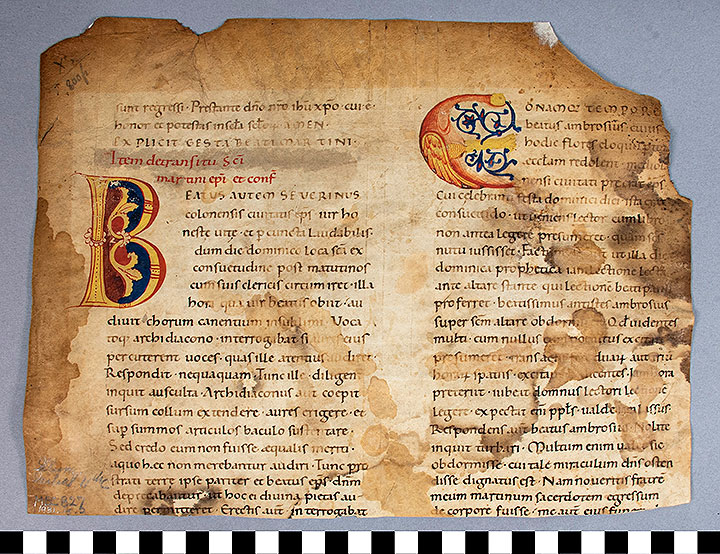 sunt regressi · Prestante dño nro ihu xpo · cui ē ·
honor et potestas in secła scłoꝝ AMEN ·
EXPLICIT GESTA BEATI MARTINI ·
Item de transitu Scī
martini epī et conf̄
BEATUS AUTEM SEVERINUS
colonensis civitatis ep̄s · vir ho
nestę vitę · et p cuncta laudabilis ·
dum die dominico loca scā ex
consuetudine post matutinos
cum suis clericis circuiret · illa
hora qua vir beatus obiit · au
divit chorum canentium in sublimi · Voca
toq; archidiacono · interrogat si aures eius
percuterent voces · quas ille attentus audiret ·
Respondit · nequaquam · Tunc ille · diligen
inquit ausculta · Archidiaconus aut̄ coepit
sursum collum extendere · aures erigere · et
sup summos articulos baculo sustentare ·
Sed credo eum non fuisse ęqualis meriti ·
a quo hęc non merebantur audiri · Tunc pro
strati terrę ipse pariter et beatus ep̄s dñm
deprecabantur · ut hoc ei divina pietas au
dire permitteret · Erectis aut̄ · interrogabat
EO NAMQ; TEMPORE
beatus ambrosius cuius
hodie flores eloquii
ęcclam redolent · mediola
nensi civitati preerat ep̄s
Cui celebranti festa dominici dici ista erat
consuetudo · ut veniens lector cum libro
non antea legere presumeret · quam scs
nutu iussisset · Factū ut illa die
dominica prophetica iam lectione lecta
ante altare stante qui lectionē beati pauli
proferret · beatissimus antistes ambrosius
super scm altare obdormi · Qd videntes
multi · cum nullus eum excitare
presumeret · transactis duarū aut triū
horarū spatiis · excitant dicentes · Iam hora
preterit · iubeat domnus lectori lectionē
legere · expectat enī ppls valde iam lassus ·
Respondens aut̄ beatus ambrosius · Nolite
inquit turbari · Multum enim valet sic
obdormisse · cui tale miraculum dns osten
disse dignatus est · Nam noveritis fratrē
meum martinum sacerdotem egressum
de corpore fuisse · me aut̄ eius funeri